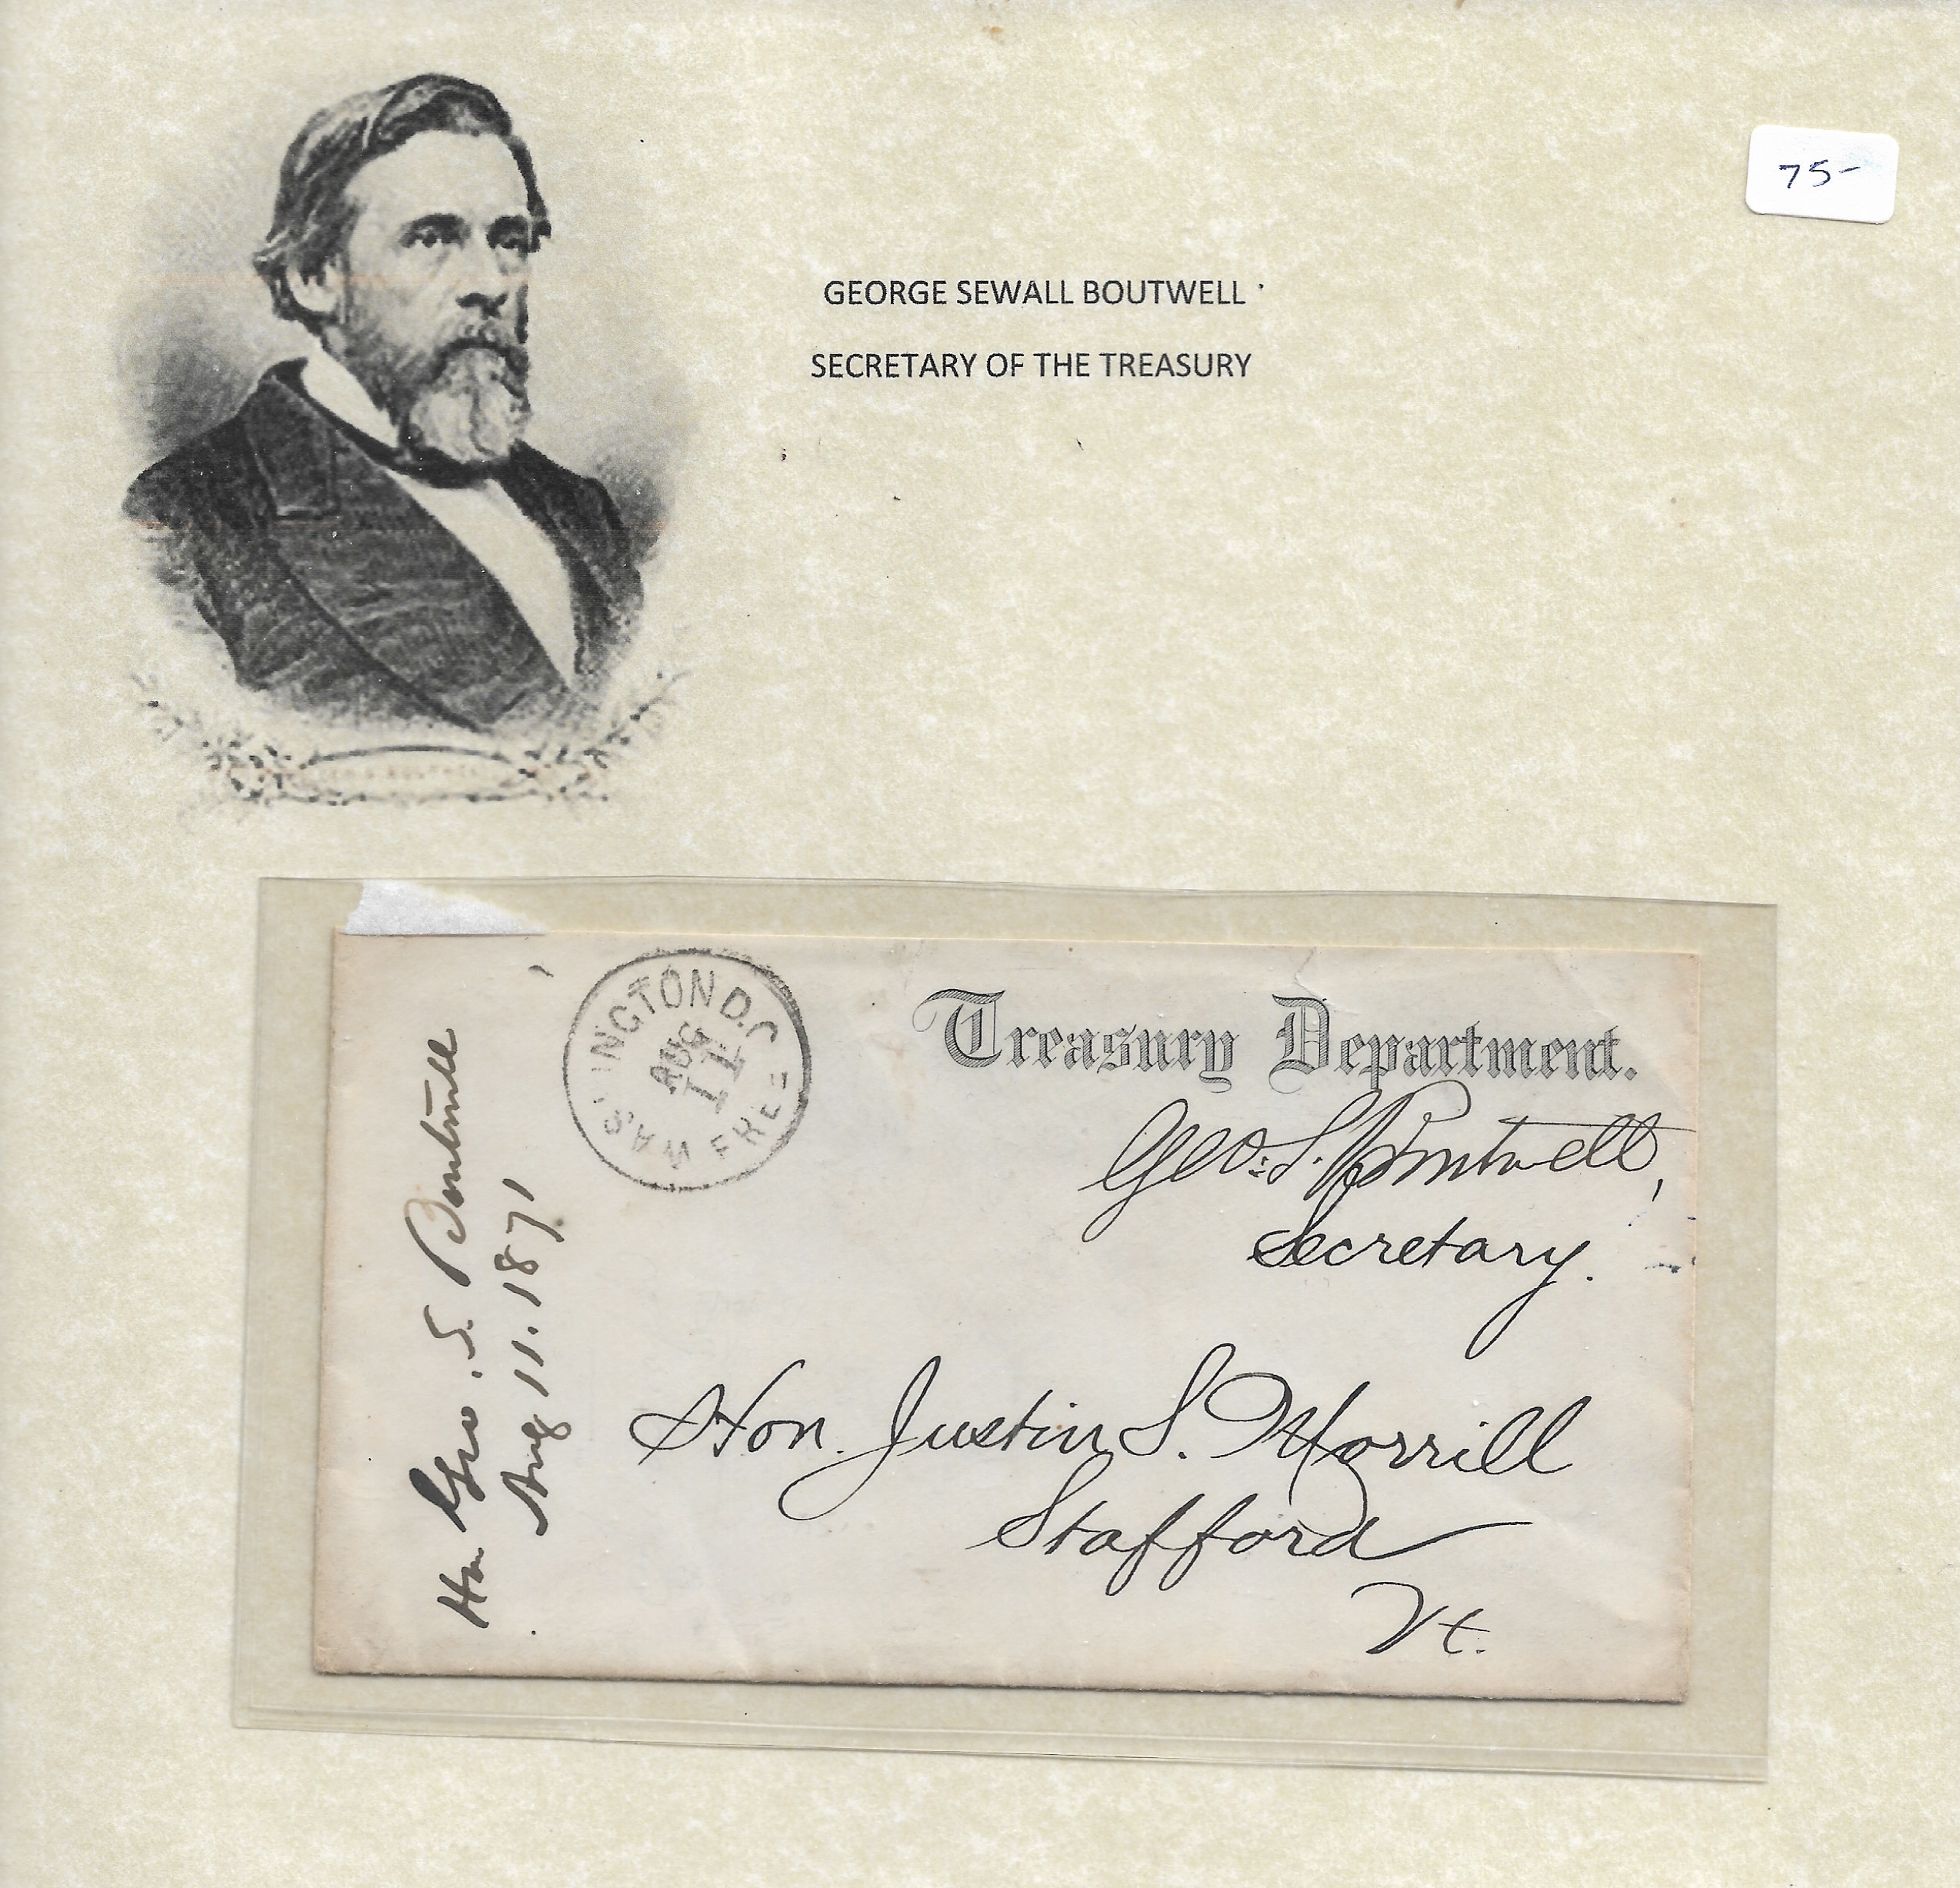 75-
GEORGE SEWALL BOUTWELL
SECRETARY OF THE TREASURY
WASHINGTON D.C.
AUG
11
FREE
Treasury Department.
Geo: S. Boutwell,
Secretary.
Hon. Justin S. Morrill
Stafford
Vt.
Hon Geo. S. Boutwell
Aug 11. 1871